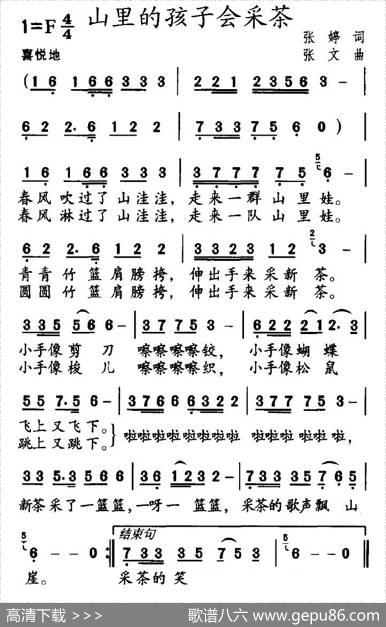 山里的孩子会采茶
1=F 4/4
张婷 词
喜悦地
张文 曲
(1 6 1 6 6 3 3 3 | 2 2 1 2 3 5 6 3 |
6 2 2· 6 1 2 2 | 7 3 3 7 5 6 0 )
1 6 1 6 6 3 3 3 | 3 7 7 7 7 5 6 - |
春风吹过了山洼洼，走来一群山里娃。
春风淋过了山洼洼，走来一队山里娃。
6 2 2· 6 1 2 2 | 3 3 2 3 1 2 3 - |
青青竹篮肩膀挎，伸出手来采新茶。
圆圆竹篮肩膀挎，伸出手来采新茶。
3 3 5 5 6 6 - | 3 7 7 5 3 - | 6 2 2 2 2 1 2· 3 |
小手像剪刀 嚓嚓嚓嚓铰， 小手像蝴蝶
小手像梭儿 嚓嚓嚓嚓织， 小手像松鼠
5 5 7· 5 6 - | 3 7 6 6 6 3 1 2 3 | 0 3 7 5 3 - |
飞上又飞下。
跳上又跳下。} 啦啦啦啦啦啦啦啦 啦啦啦啦，
3 3 5· 3 5 6 6 | 3 6 1 2 3 2 - | 7 3 3 3 5 7 6 5 |
新茶采了一篮篮，一呀一篮篮， 采茶的歌声飘山
6 - - 0 :| 结束句 7 3 3 3 5 7 5 3 | 6 - - 0 ||
崖。 采茶的笑
高清下载 >>>
歌谱八六 www.gepu86.com